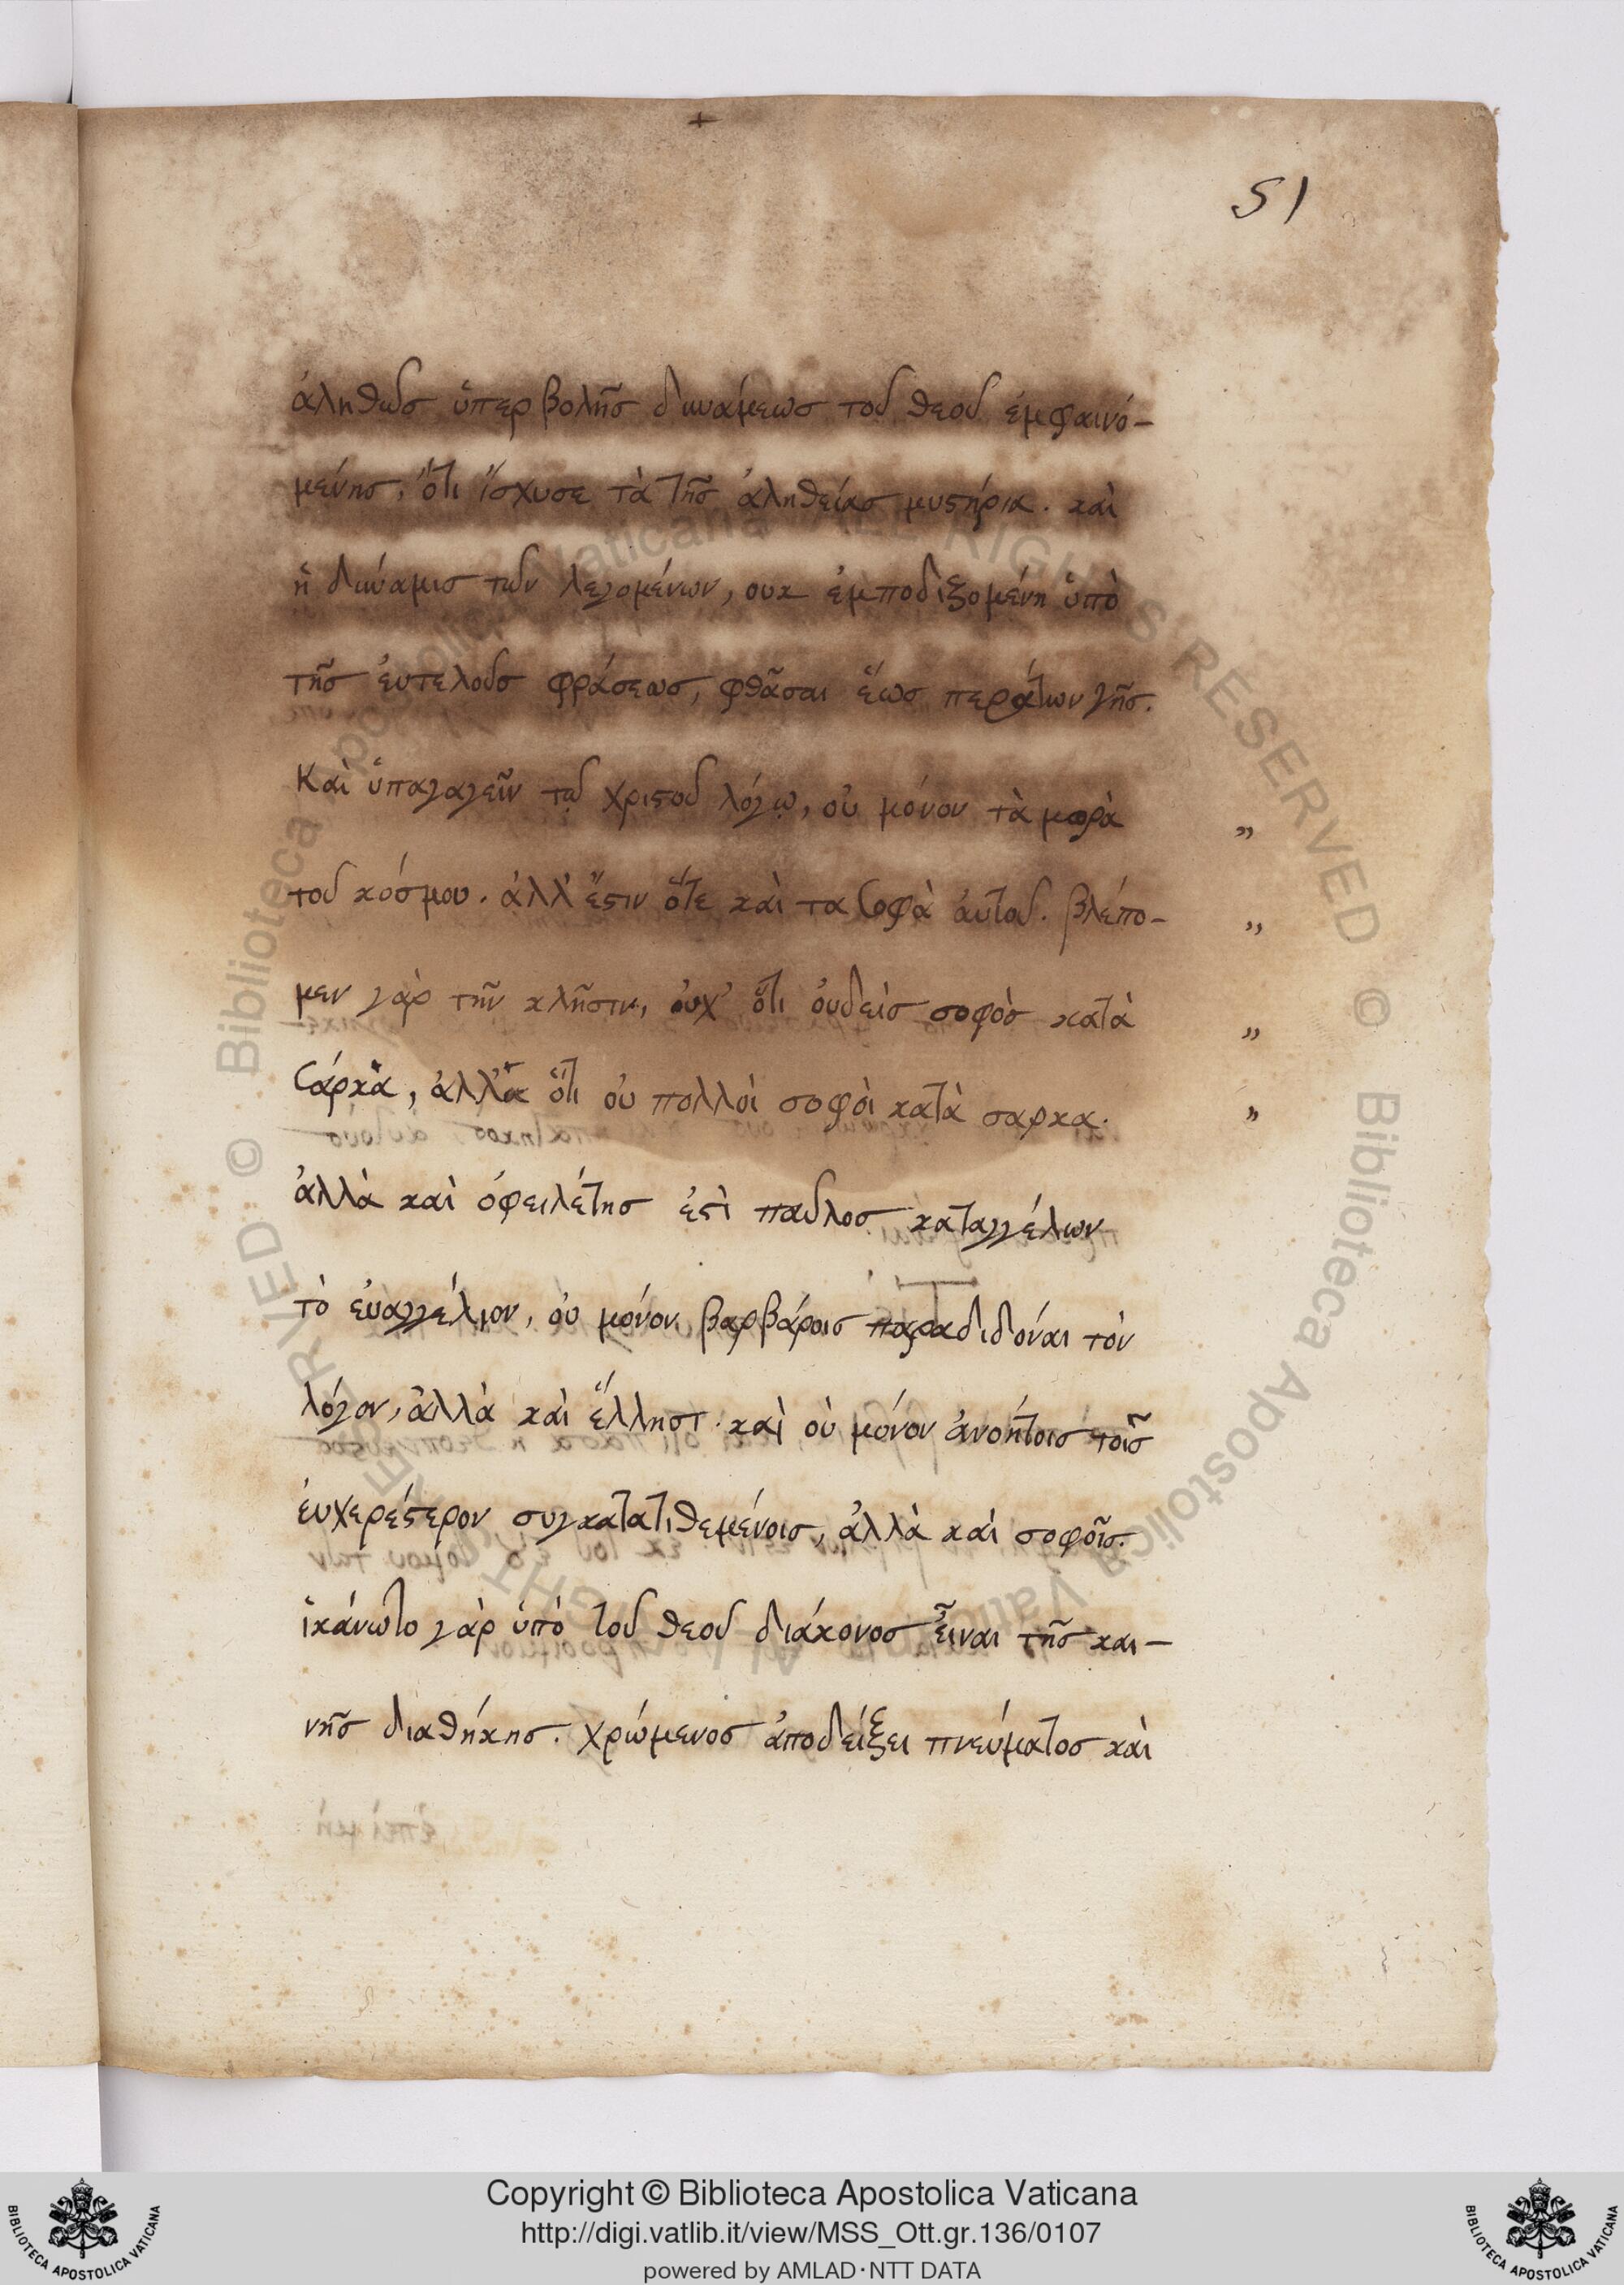 51
ἀληθῶς ὑπερβολῆς δυνάμεως τοῦ θεοῦ ἐμφαινό-
μένης, ὅτι ἴσχυσε τὰ τῆς ἀληθείας μυστήρια. καὶ
ἡ δύναμις τῶν λεγομένων, ουκ ἐμποδιζομένη ὑπὸ
τῆς ἐυτελοῦς φράσεως, φθᾶσαι ἕως περάτων γῆς.
Καὶ ὑπαγαγεῖν τῷ χριστοῦ λόγῳ, οὐ μόνον τὰ μωρὰ „
τοῦ κόσμου. ἀλλ' ἔστιν ὅτε καὶ τα σοφὰ ἀυτοῦ. βλέπο- „
μεν γὰρ τῆν κλῆσιν, ὀυχ' ὅτι ὀυδεὶς σοφὸς κατὰ „
σάρκα, ἀλλὰ ὅτι ὀυ πολλοὶ σοφὸι κατὰ σαρκα. „
ἀλλὰ καὶ ὀφειλέτης ἐστὶ παῦλος καταγγέλων
τὸ ἐυαγγέλιον, ὀυ μόνον βαρβάροις παραδιδόναι τὸν
λόγον, ἀλλὰ καὶ ἕλλησι. καὶ οὐ μόνον ἀνοήτοις τοῖς
ἐυχερέστερον συγκατατιθεμένοις, ἀλλὰ καὶ σοφοῖς.
ἱκάνωτο γὰρ ὑπὸ τοῦ θεοῦ διάκονος εἶναι τῆς και-
νῆς διαθήκης. χρώμενος ἀποδείξει πνεύματος καὶ
Copyright © Biblioteca Apostolica Vaticana
http://digi.vatlib.it/view/MSS_Ott.gr.136/0107
powered by AMLAD·NTT DATA